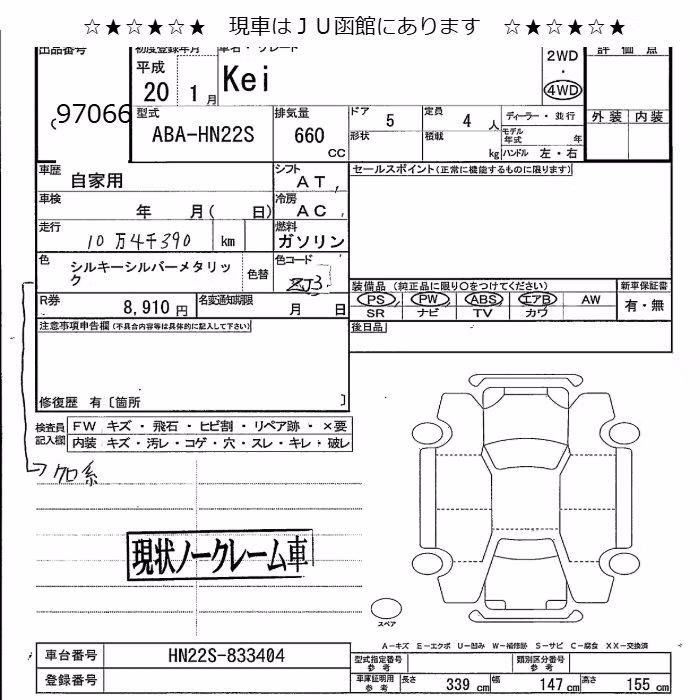 ☆★☆★☆★ 現車はＪＵ函館にあります ☆★☆★☆★
出品番号 初度登録年月 車名・グレード 評価点
97066 平成 20 1月 Kei 2WD・4WD
型式 ABA-HN22S 排気量 660 CC ドア 5 定員 4 人 ディーラー・並行 外装 内装
形状 積載 kg モデル年式 年 ハンドル 左・右
車歴 自家用 シフト AT セールスポイント(正常に機能するものに限ります)
車検 年 月( 日) 冷房 AC
走行 10万4千390 km 燃料 ガソリン
色 シルキーシルバーメタリック 色替 色コード ZJ3
装備品 (純正品に限り○をつけてください) 新車保証書
PS PW ABS エアB AW 有・無
SR ナビ TV カワ
R券 8,910円 名変通知期限 月 日
注意事項申告欄(不具合内容等は具体的に記入して下さい) 後日品
修復歴 有〔箇所 〕
検査員記入欄 FW キズ・飛石・ヒビ割・リペア跡・×要
内装 キズ・汚レ・コゲ・穴・スレ・キレ・破レ
クロ系
現状ノークレーム車
スペア
A－キズ E－エクボ U－凹み W－補修跡 S－サビ C－腐食 XX－交換済
車台番号 HN22S-833404 型式指定番号 参考 類別区分番号 参考
登録番号 車庫証明用 参考 長さ 339 cm 幅 147 cm 高さ 155 cm